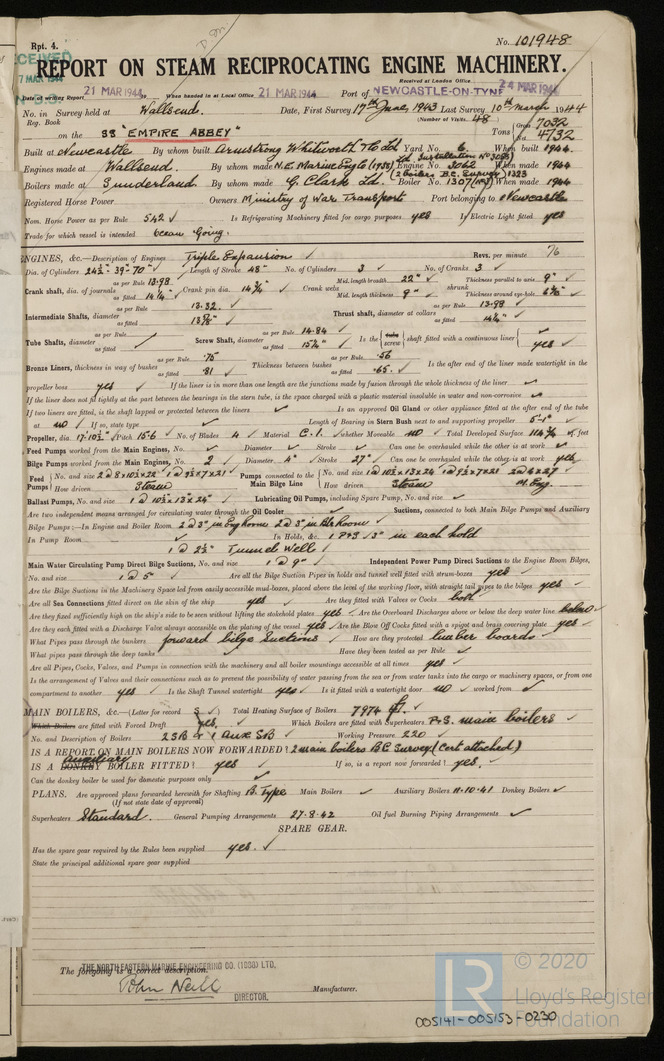 Rpt. 4.
No. 101948
RECEIVED
7 MAR 1944
REPORT ON STEAM RECIPROCATING ENGINE MACHINERY.
Received at London Office 24 MAR 1944
Date of writing Report 21 MAR 1944 When handed in at Local Office 21 MAR 1944 Port of NEWCASTLE-ON-TYNE
No. in Survey held at Wallsend. Date, First Survey 17th June, 1943 Last Survey 10th March 1944
Reg. Book (Number of Visits 48
on the SS "EMPIRE ABBEY" Tons Gross 7032 Net 4732
Built at Newcastle By whom built Armstrong Whitworth & Co Ld Yard No. 6. When built 1944
Engines made at Wallsend. By whom made N.E. Marine Eng Co (1938) Ld Engine No. 3062 When made 1944
Boilers made at Sunderland By whom made G. Clark Ld. Boiler No. 1307 When made 1944
Registered Horse Power Owners Ministry of War Transport Port belonging to Newcastle
Nom. Horse Power as per Rule 542 Is Refrigerating Machinery fitted for cargo purposes yes Is Electric Light fitted yes
Trade for which vessel is intended Ocean Going.
ENGINES, &c.—Description of Engines Triple Expansion Revs. per minute 76
Dia. of Cylinders 24½-39-70" Length of Stroke 48" No. of Cylinders 3 No. of Cranks 3
Crank shaft, dia. of journals as per Rule 13.98 as fitted 14¼" Crank pin dia. 14¼" Crank webs Mid. length breadth 22" Mid. length thickness 9" shrunk Thickness parallel to axis 9" Thickness around eye-hole
Intermediate Shafts, diameter as per Rule 13.32. as fitted 13⅜" Thrust shaft, diameter at collars as per Rule 13.98 as fitted 14¼"
Tube Shafts, diameter as per Rule as fitted Screw Shaft, diameter as per Rule 14.84 as fitted 15¼" Is the tube screw shaft fitted with a continuous liner yes
Bronze Liners, thickness in way of bushes as per Rule .75 as fitted .81 Thickness between bushes as per Rule .56 as fitted .65. Is the after end of the liner made watertight in the
propeller boss yes If the liner is in more than one length are the junctions made by fusion through the whole thickness of the liner
If the liner does not fit tightly at the part between the bearings in the stern tube, is the space charged with a plastic material insoluble in water and non-corrosive
If two liners are fitted, is the shaft lapped or protected between the liners Is an approved Oil Gland or other appliance fitted at the after end of the tube
at no If so, state type Length of Bearing in Stern Bush next to and supporting propeller 5'-1"
Propeller, dia. 17-10½" Pitch 15-6 No. of Blades 4 Material C.I. whether Moveable no Total Developed Surface sq. feet
Feed Pumps worked from the Main Engines, No. Diameter Stroke Can one be overhauled while the other is at work
Bilge Pumps worked from the Main Engines, No. 2 Diameter 4" Stroke 27" Can one be overhauled while the other is at work yes
Feed Pumps No. and size 2@8x10½x22" 1@9½x7x21 How driven Steam Pumps connected to the Main Bilge Line No. and size 1@10½x13x24 1@9½x7x21 2@4x27 How driven Steam M. Eng.
Ballast Pumps, No. and size 1@10½x13x24" Lubricating Oil Pumps, including Spare Pump, No. and size
Are two independent means arranged for circulating water through the Oil Cooler Suctions, connected to both Main Bilge Pumps and Auxiliary
Bilge Pumps:—In Engine and Boiler Room 2@3" in Eng Room 2@3" in Blr Room
In Pump Room In Holds, &c. 1 P&S 3" in each hold
1@2½" Tunnel Well
Main Water Circulating Pump Direct Bilge Suctions, No. and size 1@9" Independent Power Pump Direct Suctions to the Engine Room Bilges,
No. and size 1@5" Are all the Bilge Suction Pipes in holds and tunnel well fitted with strum-boxes yes
Are the Bilge Suctions in the Machinery Space led from easily accessible mud-boxes, placed above the level of the working floor, with straight tail pipes to the bilges yes
Are all Sea Connections fitted direct on the skin of the ship yes Are they fitted with Valves or Cocks both
Are they fixed sufficiently high on the ship's side to be seen without lifting the stokehold plates yes Are the Overboard Discharges above or below the deep water line below
Are they each fitted with a Discharge Valve always accessible on the plating of the vessel yes Are the Blow Off Cocks fitted with a spigot and brass covering plate yes
What Pipes pass through the bunkers forward bilge suctions How are they protected limber boards
What pipes pass through the deep tanks Have they been tested as per Rule
Are all Pipes, Cocks, Valves, and Pumps in connection with the machinery and all boiler mountings accessible at all times yes
Is the arrangement of Valves and their connections such as to prevent the possibility of water passing from the sea or from water tanks into the cargo or machinery spaces, or from one
compartment to another yes Is the Shaft Tunnel watertight yes Is it fitted with a watertight door no worked from
MAIN BOILERS, &c.—(Letter for record S Total Heating Surface of Boilers 7974
Which Boilers are fitted with Forced Draft yes. Which Boilers are fitted with Superheaters P&S. main boilers
No. and Description of Boilers 2 SB + 1 Aux SB Working Pressure 220
IS A REPORT ON MAIN BOILERS NOW FORWARDED? 2 main boilers B.C. Survey (Cert attached.)
IS A DONKEY auxiliary BOILER FITTED? yes If so, is a report now forwarded? yes.
Can the donkey boiler be used for domestic purposes only
PLANS. Are approved plans forwarded herewith for Shafting B. Type Main Boilers Auxiliary Boilers 11-10-41 Donkey Boilers
(If not state date of approval)
Superheaters Standard. General Pumping Arrangements 27-8-42 Oil fuel Burning Piping Arrangements
SPARE GEAR.
Has the spare gear required by the Rules been supplied yes.
State the principal additional spare gear supplied
THE NORTH EASTERN MARINE ENGINEERING CO. (1938) LTD.
The foregoing is a correct description.
John Neill
DIRECTOR.
Manufacturer.
© 2020
LR
Lloyd's Register
Foundation
005141-005153-0230